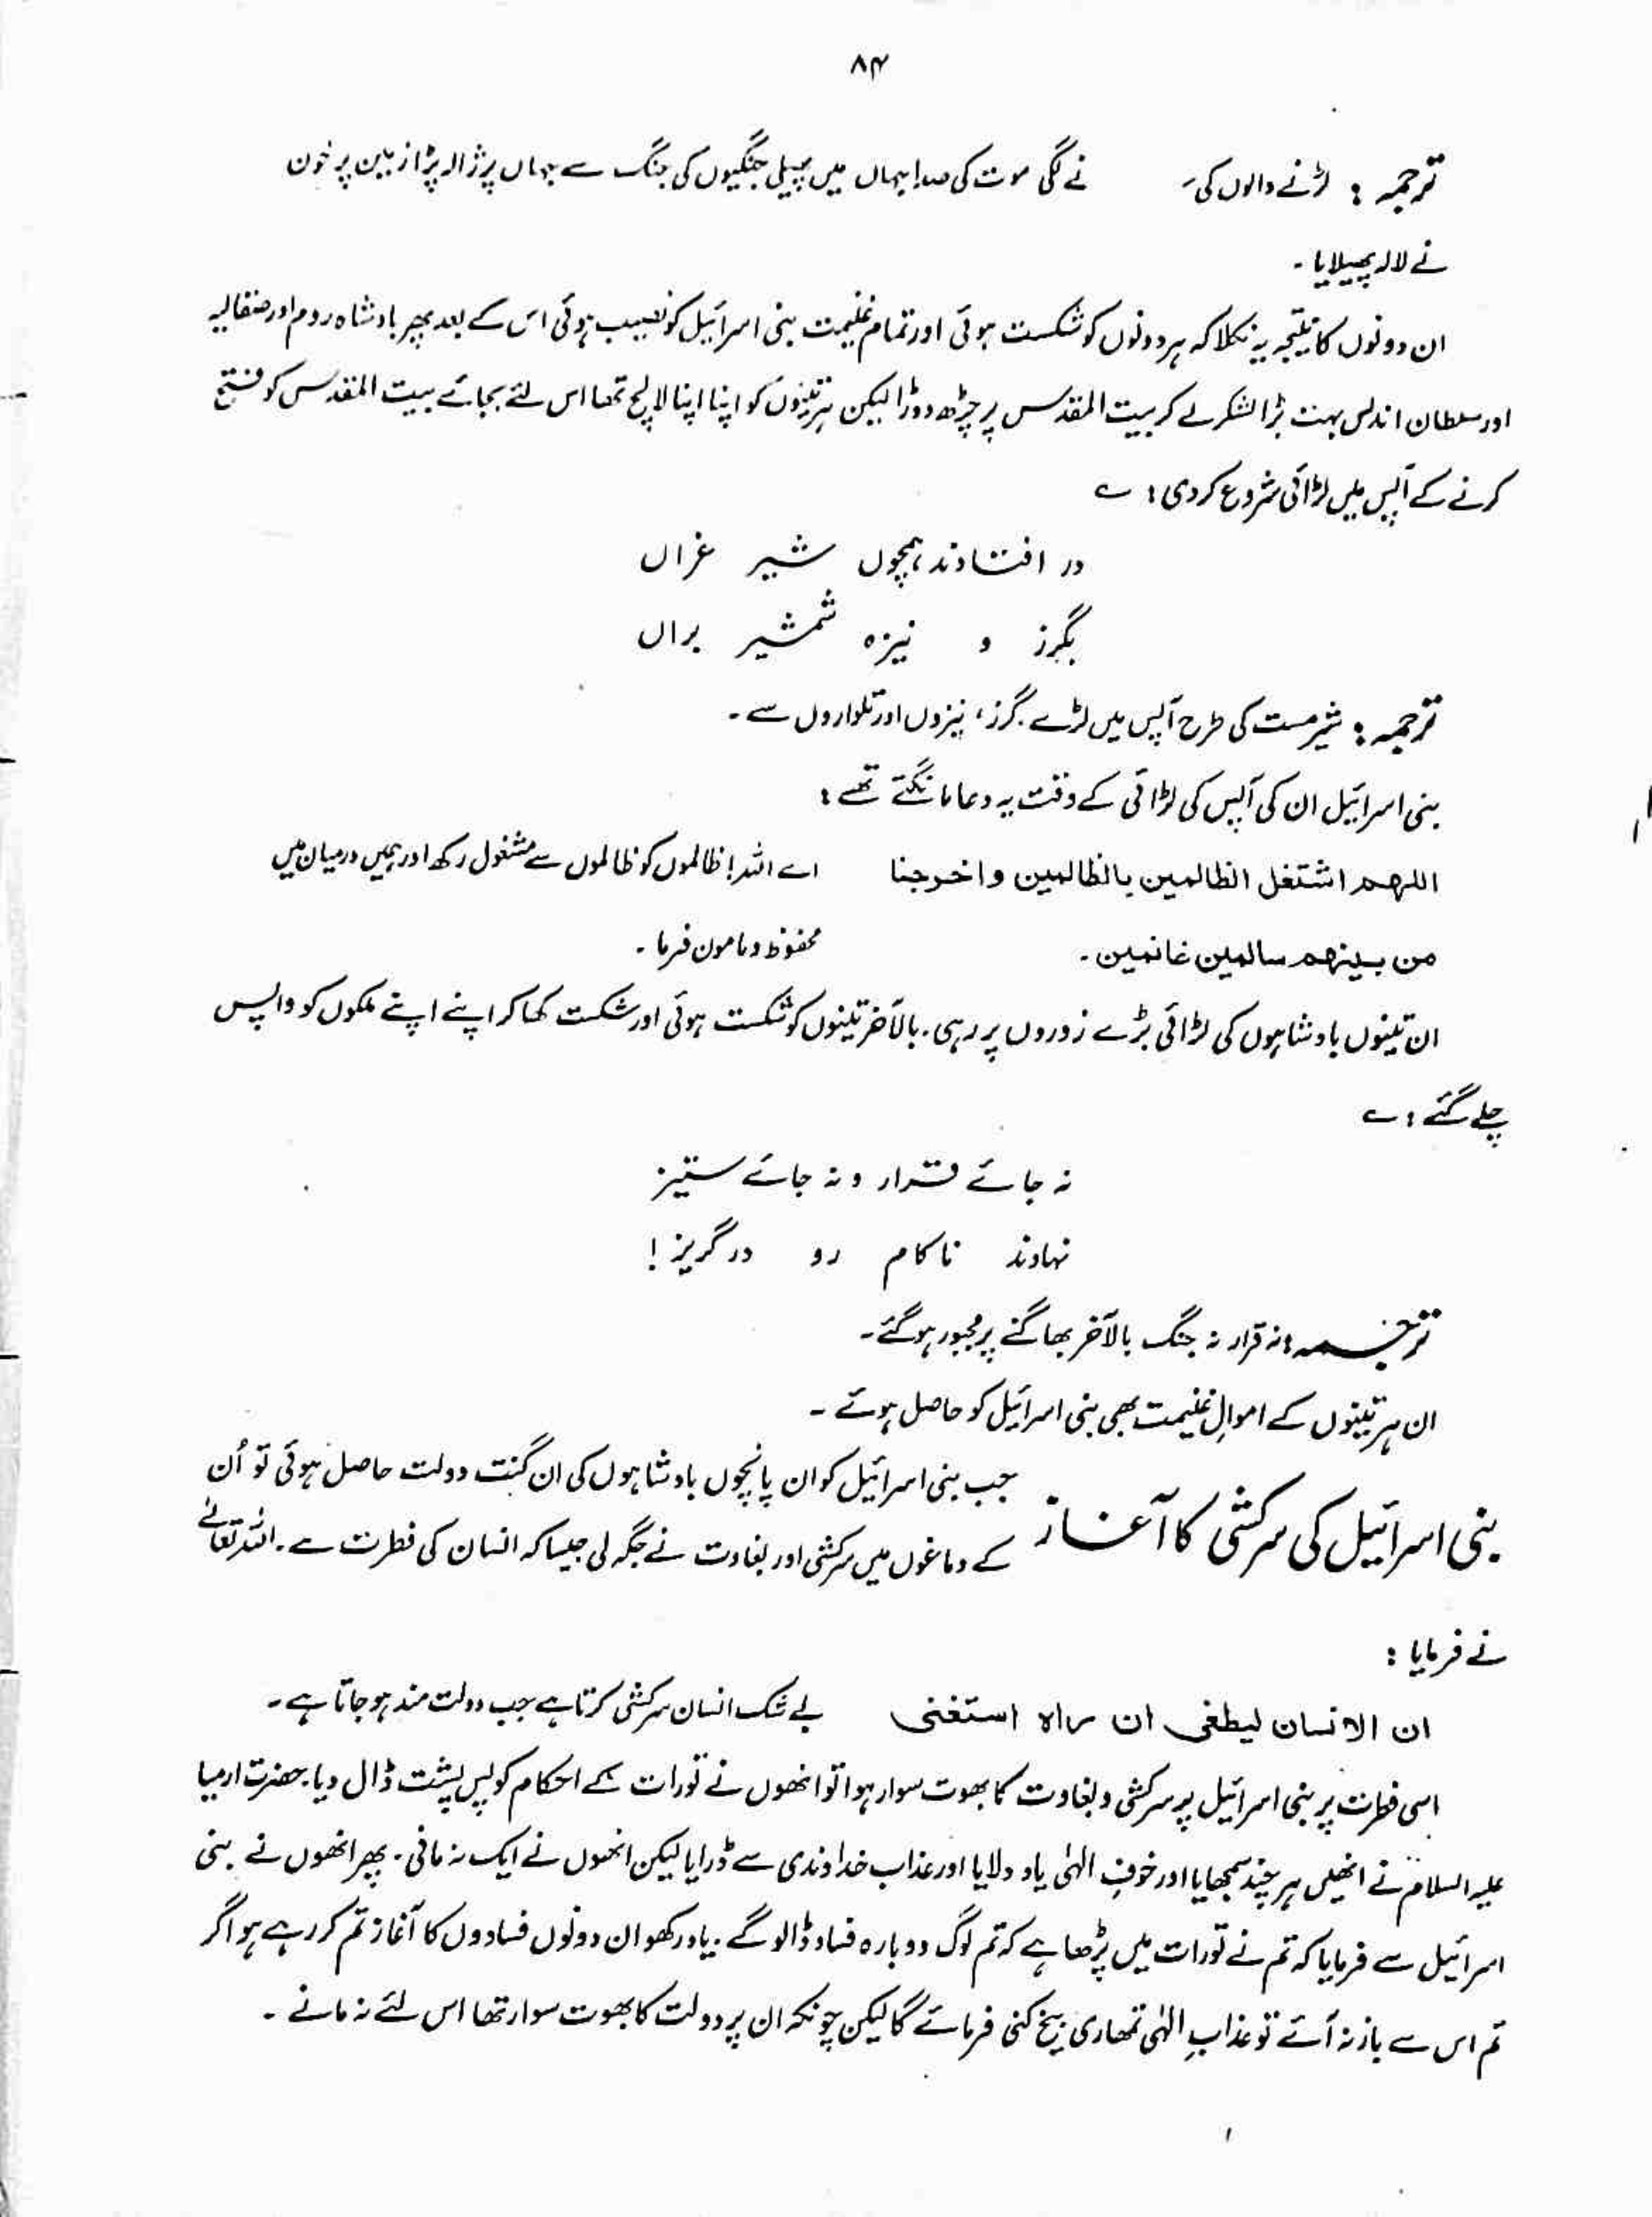 ۸۴
ترجمہ : لڑنے والوں کی نے لگی موت کی صدا یہاں میں پھیلی جنگیوں کی جنگ سے یہاں پر ژالہ پڑا زمین پر خون
نے لالہ پھیلایا ۔
ان دونوں کا نتیجہ یہ نکلا کہ ہر دونوں کو شکست ہوئی اور تمام غنیمت بنی اسرائیل کو نصیب ہوئی اس کے بعد پھر بادشاہ روم اور صنقالیہ
اور سلطان اندلس بہت بڑا لشکر لے کر بیت المقدس پر چڑھ دوڑا لیکن ہر تینوں کو اپنا اپنا لالچ تھا اس لئے بجائے بیت المقدس کو فتح
کرنے کے آپس میں لڑائی شروع کردی : ے
در افتادند ہمچوں شیر غراں
بگرز و نیزہ شمشیر براں
ترجمہ : شیر مست کی طرح آپس میں لڑے گرز ، نیزوں اور تلواروں سے ۔
بنی اسرائیل ان کی آپس کی لڑائی کے وقت یہ دعا مانگتے تھے :
اللہم اشتغل الظالمین بالظالمین و اخرجنا اے اللہ ! ظالموں کو ظالموں سے مشغول رکھ اور ہمیں درمیان میں
من بینہم سالمین غانمین ۔ محفوظ و مامون فرما ۔
ان تینوں بادشاہوں کی لڑائی بڑے زوروں پر رہی ۔ بالآخر تینوں کو شکست ہوئی اور شکست کھا کر اپنے اپنے ملکوں کو واپس
چلے گئے : ے
نہ جائے قرار و نہ جائے ستیز
نہادند ناکام رو در گریز !
ترجمہ : نہ قرار نہ جنگ بالآخر بھاگنے پر مجبور ہوگئے ۔
ان ہر تینوں کے اموالِ غنیمت بھی بنی اسرائیل کو حاصل ہوئے ۔
بنی اسرائیل کی سرکشی کا آغاز جب بنی اسرائیل کو ان پانچوں بادشاہوں کی ان گنت دولت حاصل ہوئی تو اُن
کے دماغوں میں سرکشی اور بغاوت نے جگہ لی جیسا کہ انسان کی فطرت ہے ۔ اللہ تعالےٰ
نے فرمایا :
ان الانسان لیطغی ان راہ استغنی بے شک انسان سرکشی کرتا ہے جب دولت مند ہو جاتا ہے ۔
اسی فطرت پر بنی اسرائیل پر سرکشی و بغاوت کا بھوت سوار ہوا تو انھوں نے تورات کے احکام کو پس پشت ڈال دیا ۔ حضرت ارمیا
علیہ السلام نے انھیں ہر چند سمجھایا اور خوفِ الہٰی یاد دلایا اور عذاب خداوندی سے ڈرایا لیکن انھوں نے ایک نہ مانی ۔ پھر انھوں نے بنی
اسرائیل سے فرمایا کہ تم نے تورات میں پڑھا ہے کہ تم لوگ دوبارہ فساد ڈالو گے ۔ یاد رکھو ان دونوں فسادوں کا آغاز تم کر رہے ہو اگر
تم اس سے باز نہ آئے تو عذابِ الہٰی تمھاری بیخ کنی فرمائے گا لیکن چونکہ ان پر دولت کا بھوت سوار تھا اس لئے نہ مانے ۔